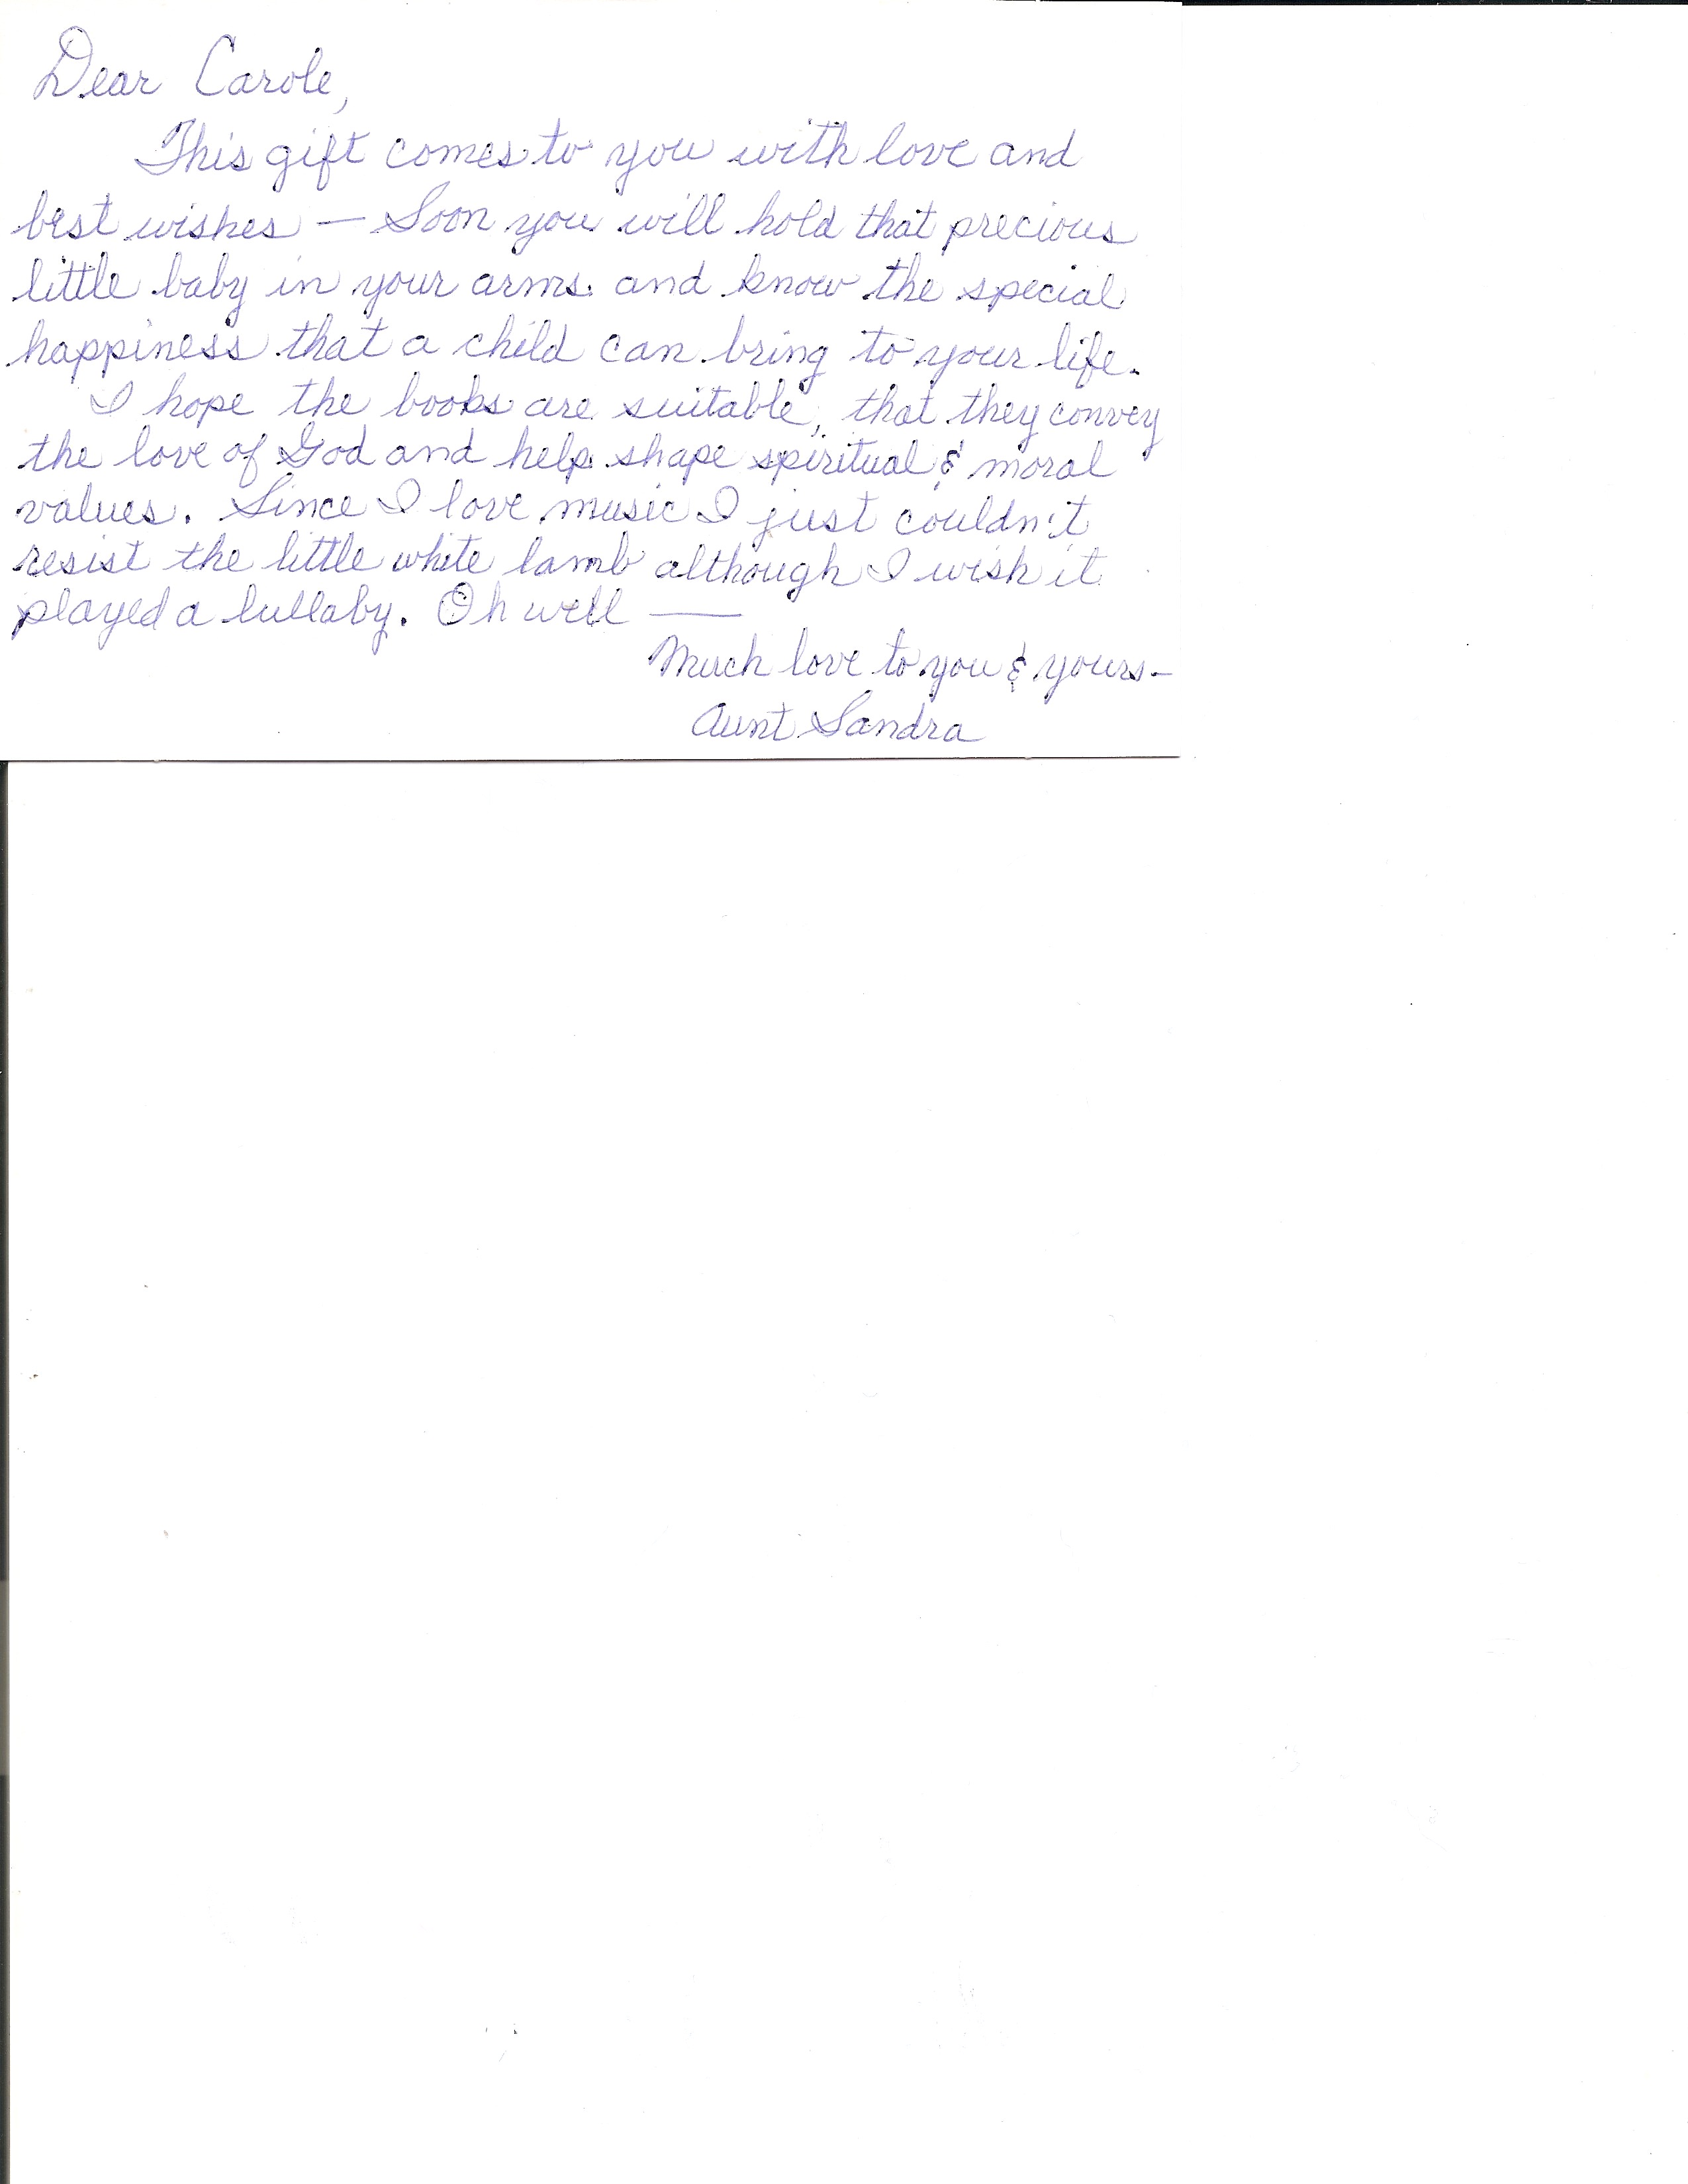 Dear Carole,
This gift comes to you with love and
best wishes — Soon you will hold that precious
little baby in your arms and know the special
happiness that a child can bring to your life.
I hope the books are suitable, that they convey
the love of God and help shape spiritual & moral
values. Since I love music I just couldn't
resist the little white lamb although I wish it
played a lullaby. Oh well —
Much love to you & yours-
Aunt Sandra